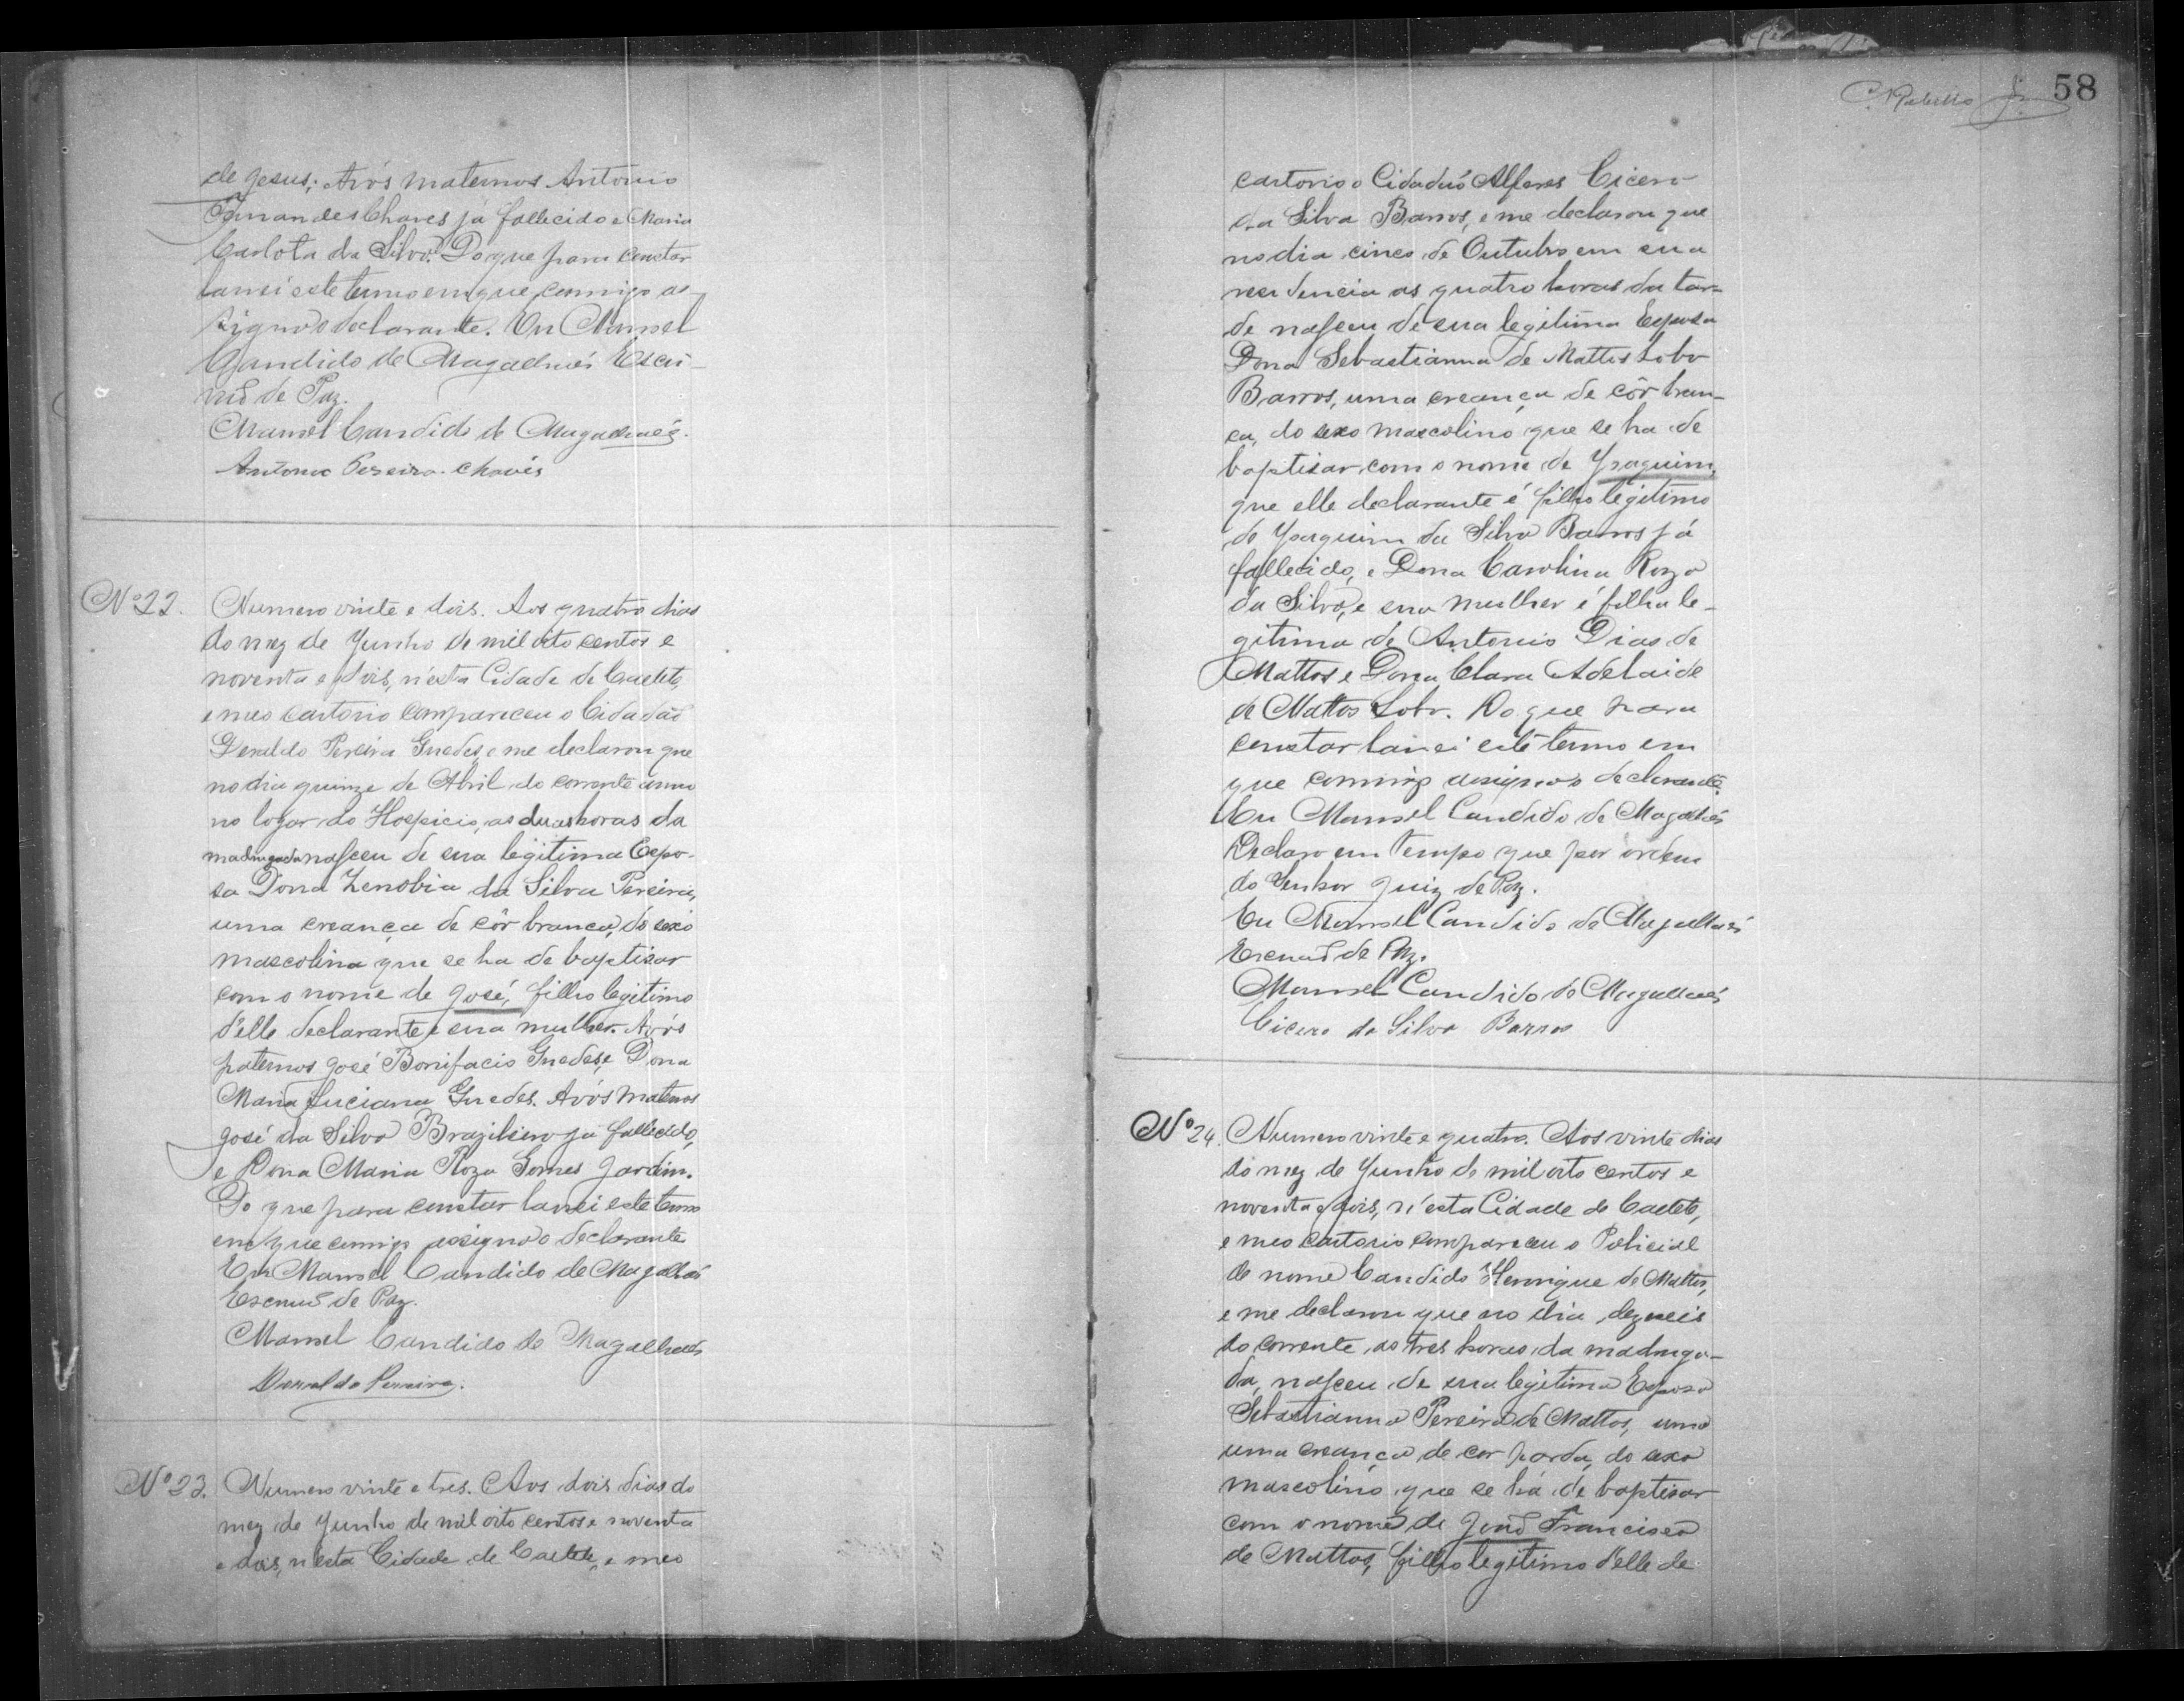 de Jesus; Avós maternos Antonio
Fernandes Chaves já fallecido e Maria
Carlota da Silva. Do que para constar
lancei este termo em que commigo as-
signa o declarante. Eu Manoel
Candido de Magalhães Escri-
vão de Paz.
Manoel Candido de Magalhães.
Antonio Pereira Chaves
Nº 22.
Numero vinte e dois. Aos quatro dias
do mez de Junho de mil oito centos e
noventa e dois, n'esta Cidade de Caeteté,
e meo cartorio compareceu o Cidadão
Deraldo Pereira Guedes, e me declarou que
no dia quinze de Abril do corrente anno
no logar do Hospicio, as duas horas da
madrugada nasceu de sua legitima Espo-
sa Dona Zenobia da Silva Pereira,
uma creança de côr branca, do sexo
mascolina que se ha de baptisar
com o nome de José, filho legitimo
d'elle declarante e sua mulher. Avós
paternos José Bonifacio Guedes, e Dona
Maria Luciana Guedes. Avós maternos
José da Silva Brazileiro já fallecido,
e Dona Maria Roza Gomes Jardim.
Do que para constar lancei este termo
em que commigo assigna o declarante
Eu Manoel Candido de Magalhães
Escrivão de Paz.
Manoel Candido de Magalhães
Deraldo Pereira.
Nº 23.
Numero vinte e tres. Aos dois dias do
mez de Junho de mil oito centos e noventa
e dois, n'esta Cidade de Caeteté, e meo
58
cartorio o Cidadão Alferes Cicero
da Silva Barros, e me declarou que
no dia cinco de Outubro em sua
residencia as quatro horas da tar-
de nasceu de sua legitima Esposa
Dona Sebastianna de Mattos Lobo
Barros, uma creança de côr bran-
ca, do sexo mascolino que se ha de
baptisar com o nome de Joaquim,
que elle declarante é filho legitimo
de Joaquim da Silva Barros já
fallecido, e Dona Carolina Roza
da Silva, e sua mulher é filha le-
gitima de Antonio Dias de
Mattos e Dona Clara Adelaide
de Mattos Lobo. Do que para
constar lancei este termo em
que commigo assigna o declarante.
Eu Manoel Candido de Magalhães
Declaro em tempo que por ordem
do Senhor Juiz de Paz.
Eu Manoel Candido de Magalhães
Escrivão de Paz.
Manoel Candido de Magalhães
Cicero da Silva Barros
Nº 24.
Numero vinte e quatro. Aos vinte dias
do mez de Junho de mil oito centos e
noventa e dois, n'esta Cidade de Caeteté,
e meo cartorio compareceu o Policial
de nome Candido Henrique de Mattos,
e me declarou que no dia dezeseis
do corrente, as tres horas da madruga-
da, nasceu de sua legitima Esposa
Sebastianna Pereira de Mattos, uma
uma creança de cor parda, do sexo
mascolino que se há de baptisar
com o nome de João Francisco
de Mattos, filho legitimo d'elle de